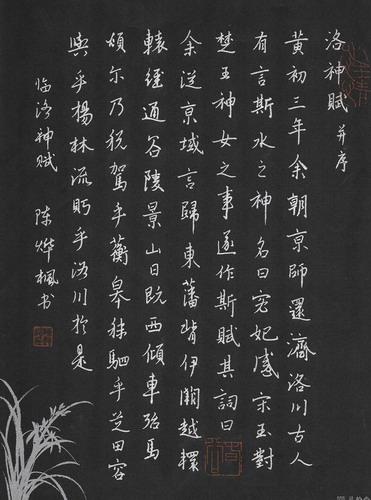 洛神賦 并序
黄初三年余朝京師還濟洛川古人
有言斯水之神名曰宓妃感宋玉對
楚王神女之事遂作斯賦其詞曰
余從京域言歸東藩背伊闕越轘
轅經通谷陵景山日既西傾車殆馬
煩尔乃税駕乎蘅皋秣駟乎芝田容
與乎楊林流眄乎洛川於是
临洛神赋 陈烨枫书